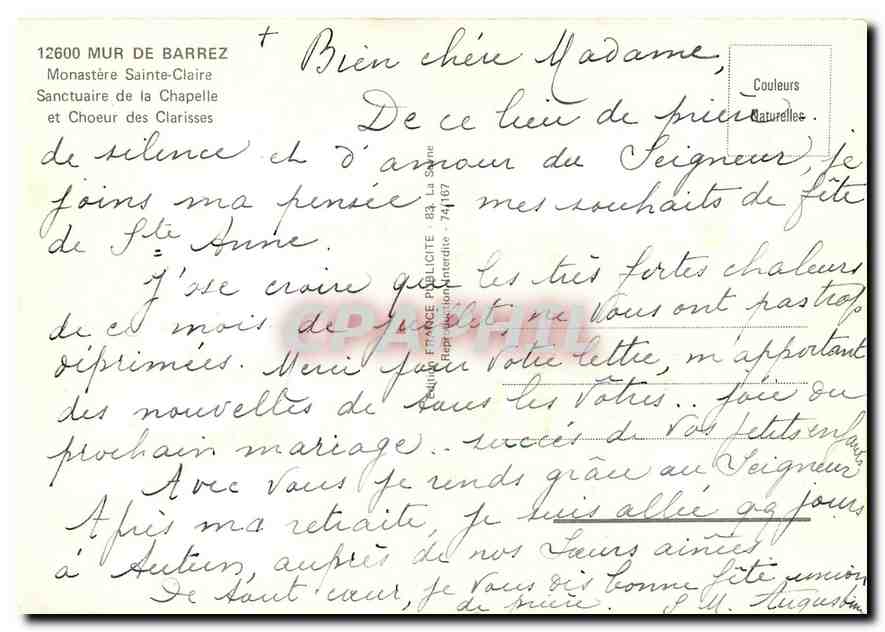 12600 MUR DE BARREZ
Monastère Sainte-Claire
Sanctuaire de la Chapelle
et Choeur des Clarisses
Couleurs
Naturelles
Edition FRANCE PUBLICITE - 83. La Seyne
Reproduction Interdite - 74/167
CPAPHIL
+ Bien chère Madame,
De ce lieu de prière -
de silence et d'amour du Seigneur, je
joins ma pensée - mes souhaits de fête
de Ste Anne.
J'ose croire que les très fortes chaleurs
de ce mois de juillet ne Vous ont pas trop
déprimées. Merci pour Votre lettre, m'apportant
des nouvelles de tous les Vôtres.. joie du
prochain mariage.. succés de Vos petits enfants
Avec Vous je rends grâce au Seigneur
Après ma retraite, je suis allée qq jours
à Autun, auprès de nos Soeurs ainées
De tout coeur, je Vous dis bonne fête union
de prière. S. M. Augustine